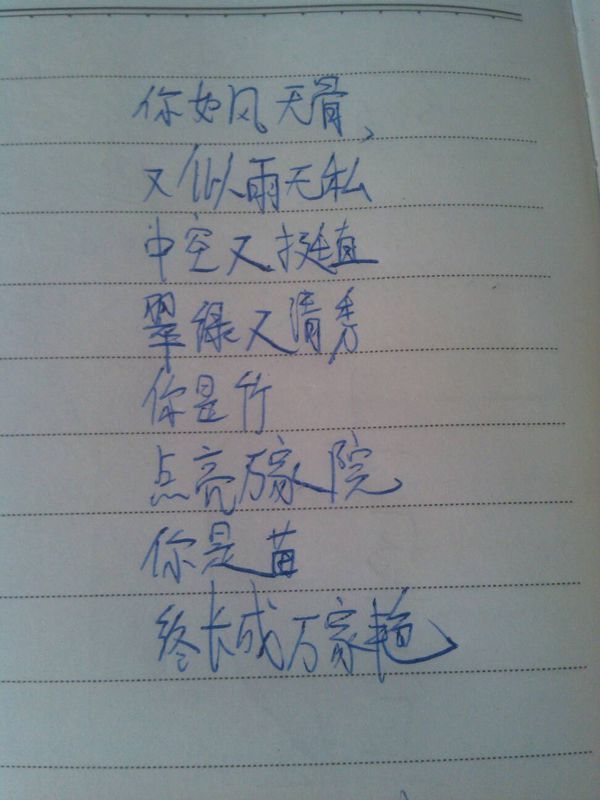 你如风无骨、
又似雨无私
中空又挺直
翠绿又清秀
你是竹
点亮万家院
你是苗
终长成万家艳